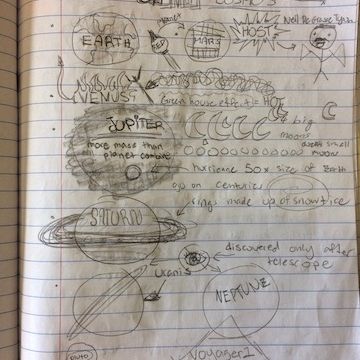 COSMOS
EARTH
RED
MARS
HOST
Neil De Grasse Tyson
VENUS
Green house effect HOT
JUPITER
more mass than
planet combine
4 big
moons
dozen small
moon
hurricane 50x size of Earth
on centuries
SATURN
rings made up of snow & ice
discovered only after
telescope
Uranis
NEPTUNE
Pluto
Voyager 1